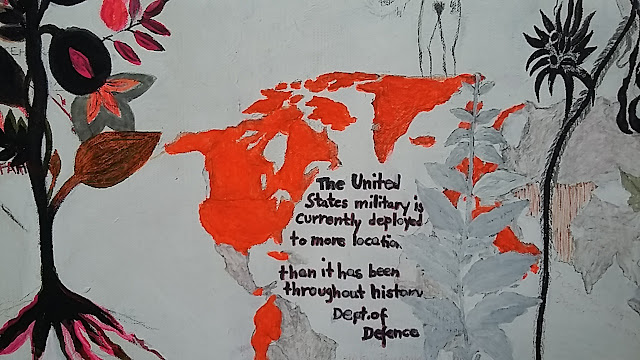 The United
States military is
currently deployed
to more location
than it has been
throughout history
Dept. of
Defence